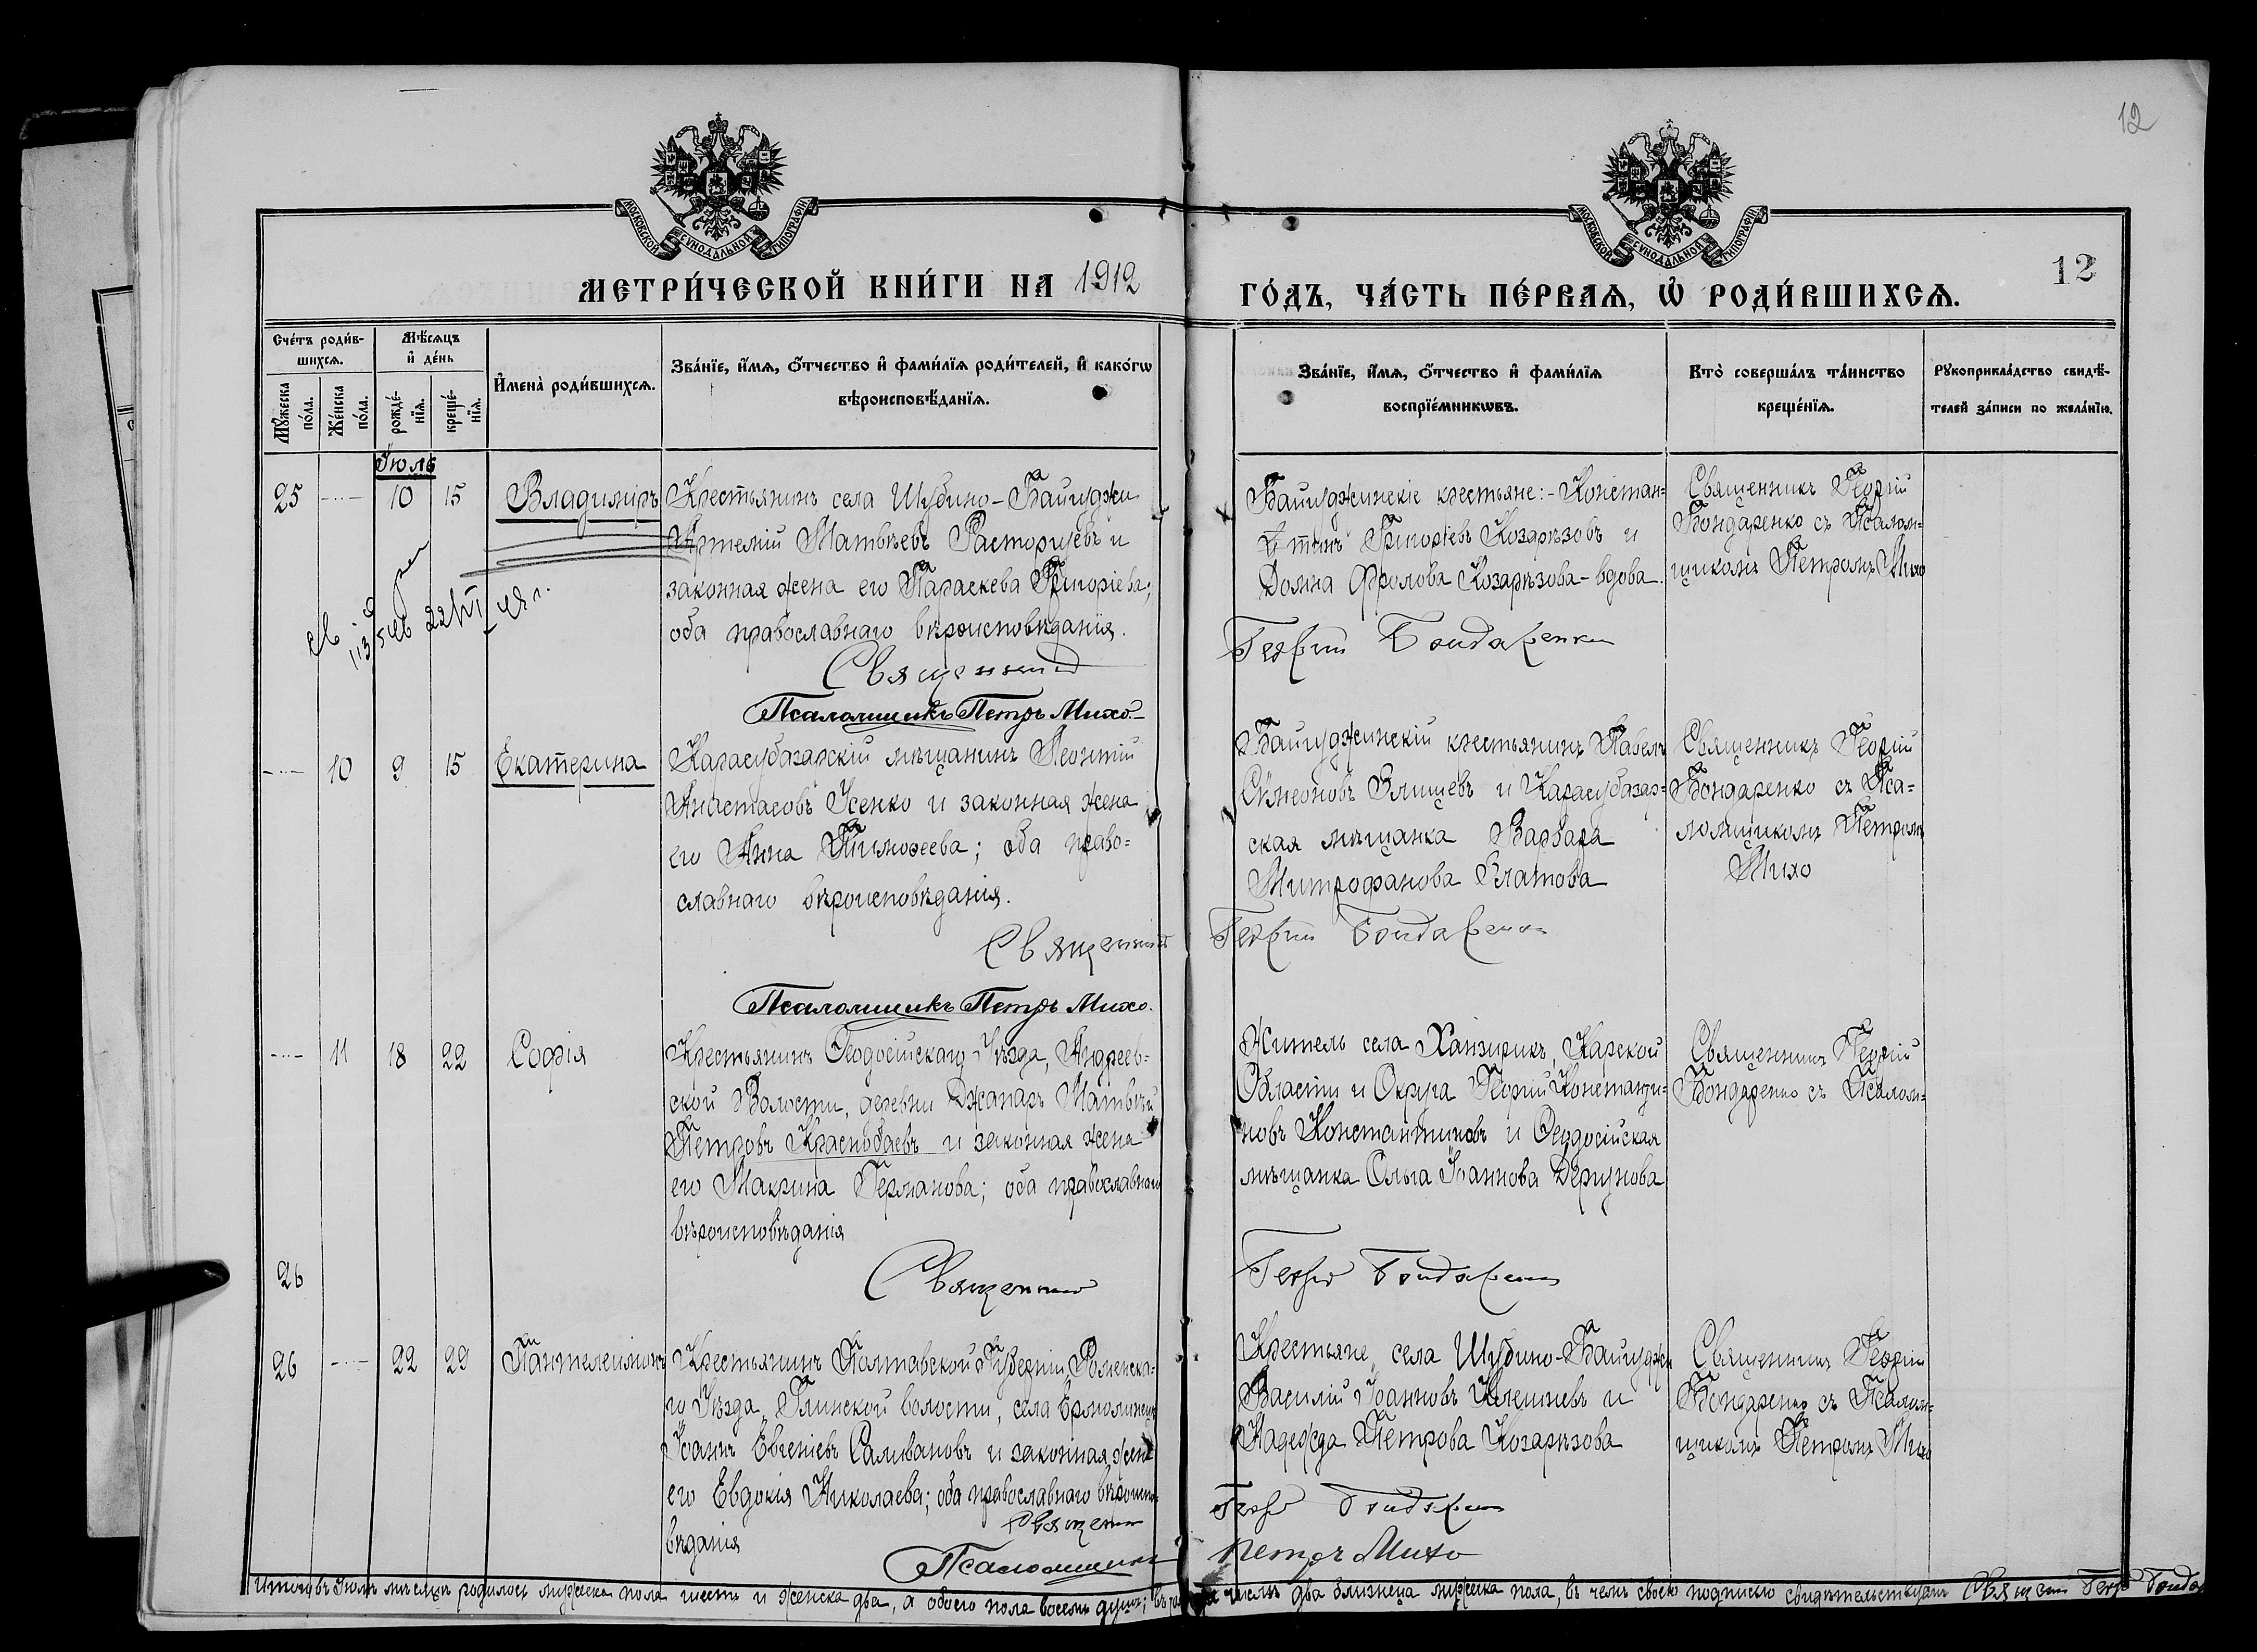 12
МОСКОВСКОЙ СѴНОДАЛЬНОЙ ТИПОГРАФІИ
МОСКОВСКОЙ СѴНОДАЛЬНОЙ ТИПОГРАФІИ
МЕТРИ́ЧЕСКОЙ КНИ́ГИ НА 1912
ГО́ДЪ, ЧА́СТЬ ПЕ́РВАѦ, Ѡ҆ РОДИ́ВШИХСѦ.
12
Сче́тъ роди́в-
шихсѧ.
Мѣ́сѧцъ
и҆ де́нь
Мꙋ́жеска
по́ла.
Же́нска
по́ла.
рожде́-
нїѧ.
креще́-
нїѧ.
И҆мена̀ роди́вшихсѧ.
Зва́нїе, и҆́мѧ, ѻ҆́тчество и҆ фами́лїѧ роди́телей, и҆ како́гѡ
вѣроисповѣ́данїѧ.
Зва́нїе, и҆́мѧ, ѻ҆́тчество и҆ фами́лїѧ
воспрїе́мникѡвъ.
Кто̀ соверша́лъ та́инство
креще́нїѧ.
Рꙋкоприкла́дство свидѣ́-
телей за́писи по жела́нїю.
Іюль
25 10 15 Владиміръ
Крестьянинъ села Шубино-Байгуджи
Артемій Матвѣевъ Расторгуевъ и
законная жена его Параскева Григоріева;
оба православнаго вѣроисповѣданія.
Священник
Псаломщикъ Петръ Михо.
Байгуджинскіе крестьяне:- Констан=
тинъ Григорьевъ Козарѣзовъ и
Домна Фролова Козарѣзова-вдова.
Георгий Бондаренко
Священникъ Георгій
Бондаренко съ Псалом=
щикомъ Петромъ Михо
10 9 15 Екатерина
Карасубазарскій мѣщанинъ Леонтій
Анастасовъ Усенко и законная жена
его Анна Тимофеева; оба право=
славнаго вѣроисповѣданія.
Священник
Псаломщикъ Петръ Михо.
Байгуджинскій крестьянинъ Павелъ
Симеоновъ и Карасубазар=
ская мѣщанка Варвара
Митрофанова Платова
Георгий Бондаренко
Священникъ Георгій
Бондаренко съ Пса=
ломщикомъ Петромъ
Михо
11 18 22 Софія
Крестьянинъ Ѳеодосійскаго Уѣзда, Андреев=
ской Волости, деревни Джапаръ Матвѣй
Петровъ Краснобаевъ и законная жена
его Макрина Германова; оба православнаго
вѣроисповѣданія
Священник
Житель села Ханзирикъ, Карской
Области и Округа Георгій Константи=
новъ Константиновъ и Ѳеодосійская
мѣщанка Ольга Іоаннова Дергунова
Георгий Бондаренко
Священникъ Георгій
Бондаренко съ Псалом=
26
26 22 29 Пантелеимонъ
Крестьянинъ Полтавской Губерніи, Роменска=
го Уѣзда, Глинской волости, села
Іоаннъ Евгеніевъ Саливановъ и законная жена
его Евдокія Николаева; оба православнаго вѣроиспо=
вѣданія
Священник
Псаломщикъ
Крестьяне села Шубино-Байгуджи
Василій Іоанновъ Клешневъ и
Надежда Петрова Козарѣзова
Бондаренко
Петръ Михо
Священникъ Георгій
Бондаренко съ Псалом=
щикомъ Петромъ Михо
Итого въ Іюлѣ мѣсяцѣ родилось мужеска пола шесть и женска два, а обоего пола восемь душъ; въ томъ числѣ два близнеца мужеска пола, въ чемъ своею подписью свидѣтельствуемъ